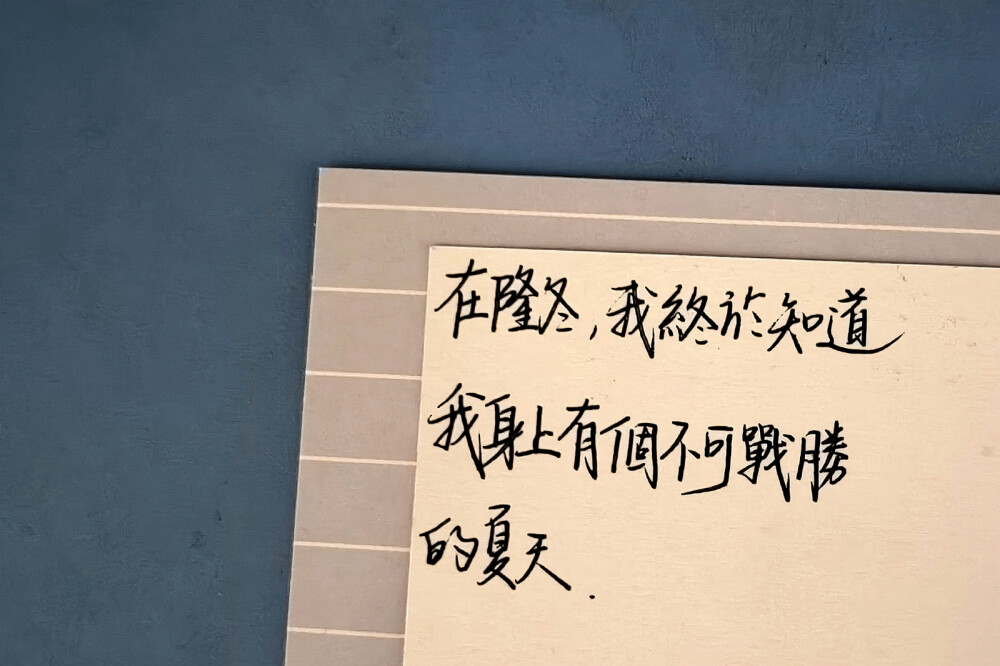 在隆冬,我終於知道
我身上有個不可戰勝
的夏天.